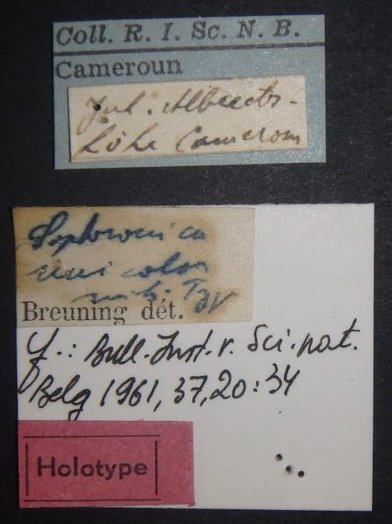 Coll. R. I. Sc. N. B.
Cameroun
Joh. Albrechts-
Höhe Cameroun
Sophronica
unicolor
mihi Typ
Breuning dét.
cf.: Bull. Inst. r. Sci. nat.
Belg 1961, 37, 20: 34
Holotype